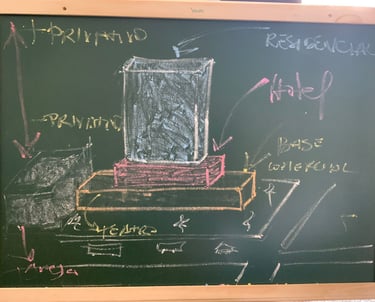 +PRIVATIVO
RESIDENCIAL
Hotel
-PRIVATIVO
BASE
COMERCIAL
TEATRO